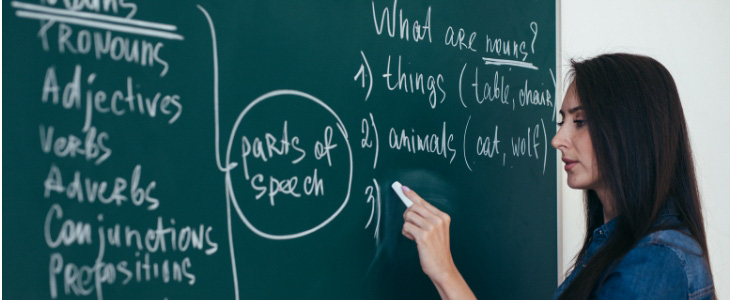 Nouns
Pronouns
Adjectives
Verbs
Adverbs
Conjunctions
Prepositions
parts of
speech
What are nouns?
1) things (table, chair
2) animals (cat, wolf)
3)